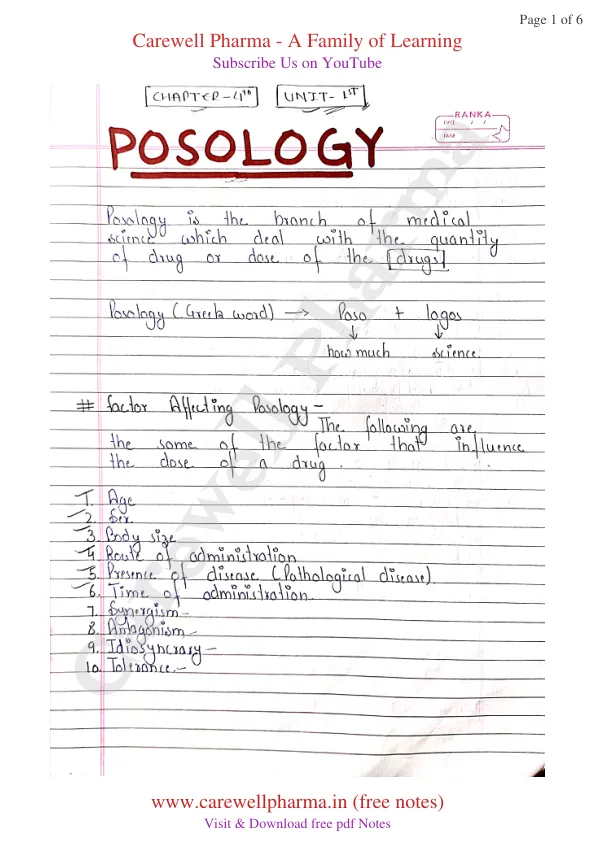 Page 1 of 6
Carewell Pharma - A Family of Learning
Subscribe Us on YouTube
CHAPTER-4th UNIT-1ST
RANKA
DATE / /
PAGE
POSOLOGY
Posology is the branch of medical
science which deal with the quantity
of drug or dose of the [drugs]
Posology (Greek word) → Poso + logos
↓ ↓
how much science.
# factor Affecting Posology -
The following are
the some of the factor that influence
the dose of a drug.
1. Age
2. Sex
3. Body size
4. Route of administration
5. Presence of disease (Pathological disease).
6. Time of administration.
7. Synergism -
8. Antagonism -
9. Idiosyncrasy -
10. Tolerance. -
Carewell Pharma
www.carewellpharma.in (free notes)
Visit & Download free pdf Notes